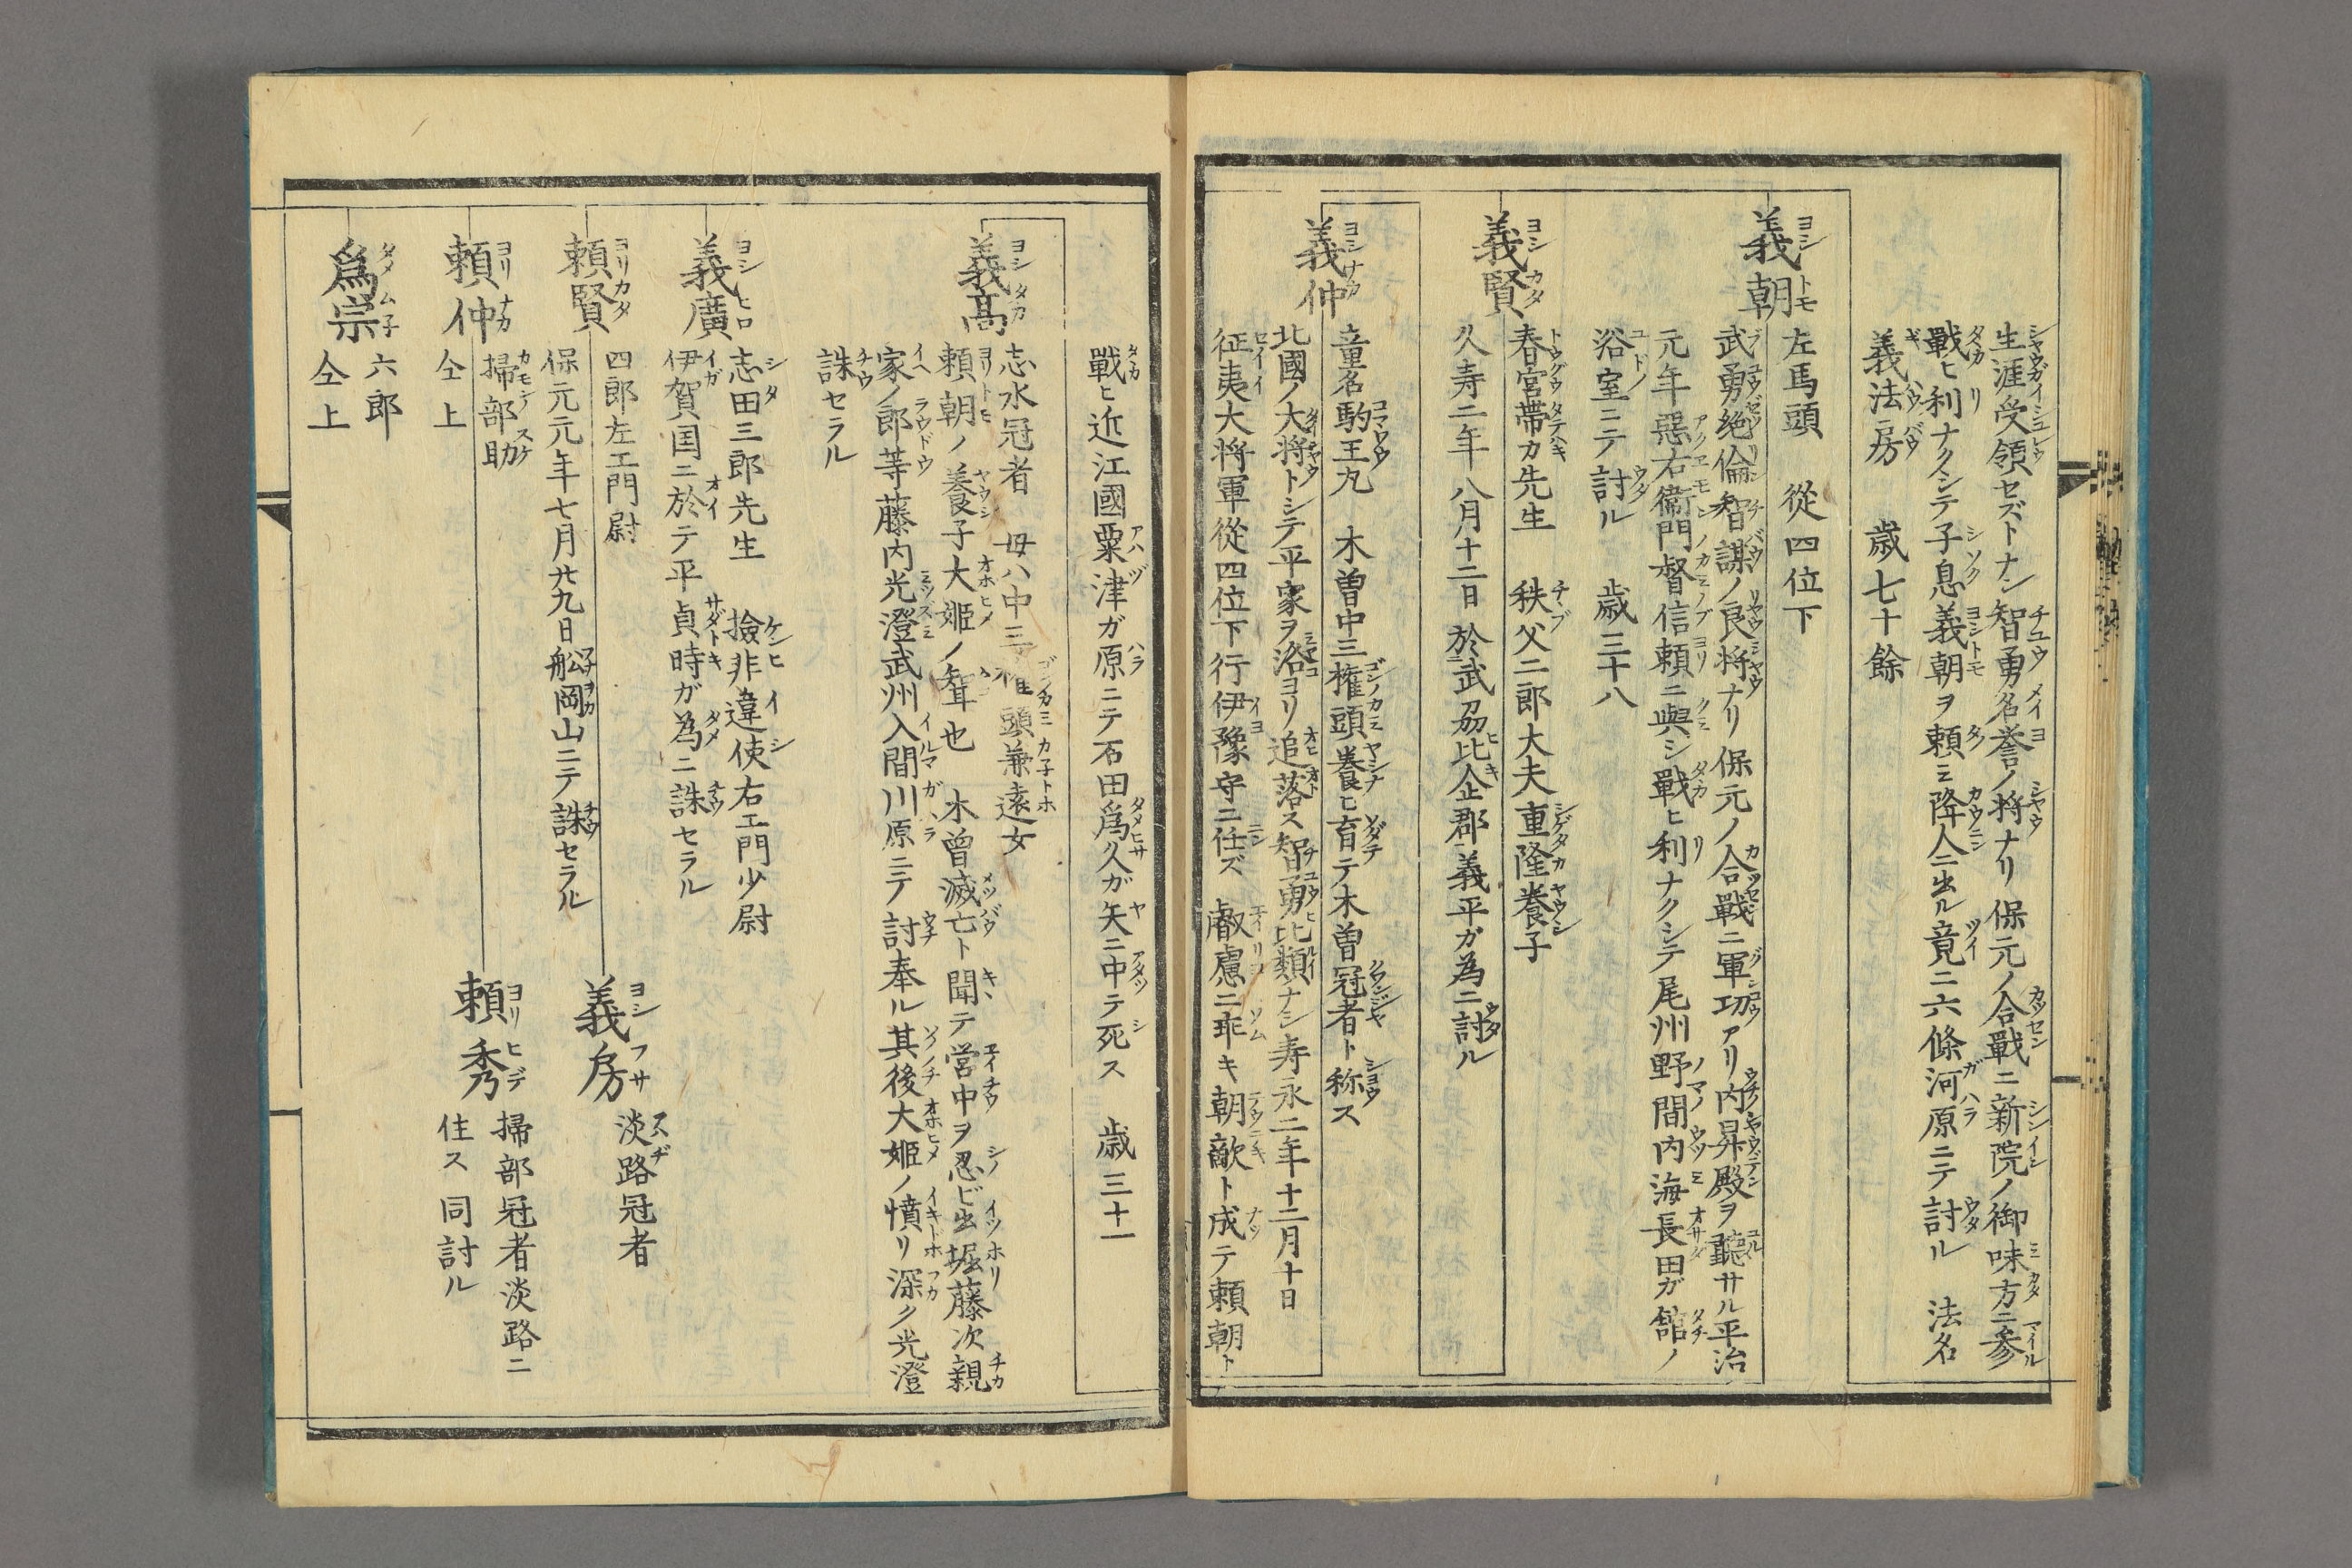 生涯受領セズトナン智勇名誉ノ将ナリ 保元ノ合戰ニ新院ノ御味方ニ参
戰ヒ利ナクシテ子息義朝ヲ頼ミ降人ニ出ル竟ニ六條河原ニテ討ル 法名
義法房 歳七十餘
義朝
左馬頭 從四位下
武勇絶倫智謀ノ良将ナリ 保元ノ合戰ニ軍功アリ内昇殿ヲ聽サル平治
元年惡右衞門督信頼ニ與シ戰ヒ利ナクシテ尾州野間内海長田ガ舘ノ
浴室ニテ討ル 歳三十八
義賢
春宮帶刀先生 秩父二郎大夫重隆養子
久寿二年八月十二日於武刕比企郡義平ガ為ニ討ル
義仲
童名駒王丸 木曽中三権頭養ヒ育テ木曽冠者ト称ス
北國ノ大将トシテ平家ヲ洛ヨリ追落ス智勇比類ナシ寿永二年十二月十日
征夷大将軍從四位下行伊豫守ニ任ズ 叡慮ニ乖キ朝敵ト成テ頼朝ト
戰ヒ近江國粟津ガ原ニテ石田爲久ガ矢ニ中テ死ス 歳三十一
義髙
志水冠者 母ハ中三権頭兼遠女
頼朝ノ養子大姫ノ聟也 木曽滅亡ト聞テ営中ヲ忍ビ出堀藤次親
家ノ郎等藤内光澄武州入間川原ニテ討奉ル其後大姫ノ憤リ深ク光澄
誅セラル
義廣
志田三郎先生 撿非違使右エ門少尉
伊賀国ニ於テ平貞時ガ為ニ誅セラル
頼賢
四郎左エ門尉
保元元年七月廿九日舩岡山ニテ誅セラル
義房
淡路冠者
頼仲
掃部助
仝上
頼秀
掃部冠者淡路ニ
住ス同討ル
爲宗
六郎
仝上